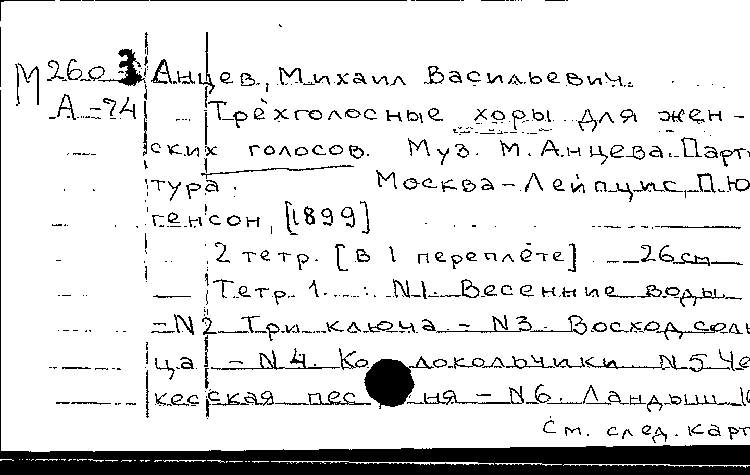 М 2603 Анцев, Михаил Васильевич.
А-74 Трёхголосные хоры для жен-
ских голосов. Муз. М. Анцева. Парт
тура. Москва-Лейпциг, П. Ю
генсон, [1899]
2 тетр. [в 1 переплёте] 26 см
Тетр. 1. : N1. Весенние воды
-N2 Три ключа - N3. Восход солн
ца - N4. Колокольчики N5 Че
кесская песня - N6. Ландыш
См. след. карт